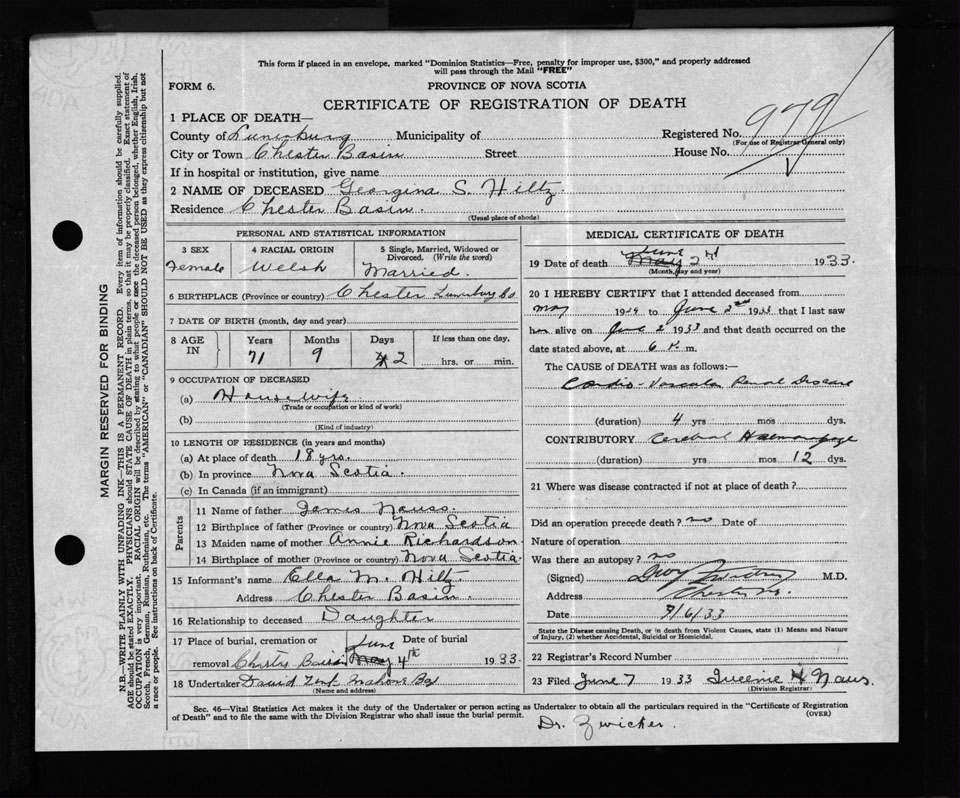 This form if placed in an envelope, marked "Dominion Statistics—Free, penalty for improper use, $300," and properly addressed
will pass through the Mail "FREE"
FORM 6.
PROVINCE OF NOVA SCOTIA
CERTIFICATE OF REGISTRATION OF DEATH
1 PLACE OF DEATH—
County of Lunenburg Municipality of Registered No. 979
(For use of Registrar General only)
City or Town Chester Basin Street House No.
If in hospital or institution, give name
2 NAME OF DECEASED Georgina S. Hiltz
Residence Chester Basin.
(Usual place of abode)
PERSONAL AND STATISTICAL INFORMATION
3 SEX 4 RACIAL ORIGIN 5 Single, Married, Widowed or Divorced. (Write the word)
Female Welsh Married.
6 BIRTHPLACE (Province or country) Chester Lunenburg Co
7 DATE OF BIRTH (month, day and year)
8 AGE IN Years Months Days If less than one day,
71 9 2 hrs. or min.
9 OCCUPATION OF DECEASED
(a) Housewife
(Trade or occupation or kind of work)
(b)
(Kind of industry)
10 LENGTH OF RESIDENCE (in years and months)
(a) At place of death 18 yrs.
(b) In province Nova Scotia.
(c) In Canada (if an immigrant)
Parents
11 Name of father James Nauss.
12 Birthplace of father (Province or country) Nova Scotia
13 Maiden name of mother Annie Richardson
14 Birthplace of mother (Province or country) Nova Scotia.
15 Informant's name Ella M. Hiltz.
Address Chester Basin.
16 Relationship to deceased Daughter
17 Place of burial, cremation or removal Date of burial
Chester Basin June May 4th 1933.
18 Undertaker David Mahone Bay
(Name and address)
MEDICAL CERTIFICATE OF DEATH
19 Date of death June May 2nd 1933.
(Month, day and year)
20 I HEREBY CERTIFY that I attended deceased from
May 1929 to June 2nd 1933 that I last saw
her alive on June 2 1933 and that death occurred on
date stated above, at 6 P. m.
The CAUSE OF DEATH was as follows:—
Cardio-Vascular Renal Disease
(duration) 4 yrs mos dys.
CONTRIBUTORY Cerebral Haemorrhage
(duration) yrs mos 12 dys.
21 Where was disease contracted if not at place of death?
Did an operation precede death? no Date of
Nature of operation
Was there an autopsy? no
(Signed) M.D.
Address Chester N.S.
Date 7/6/33
State the Disease causing Death, or in death from Violent Causes, state (1) Means and Nature
of Injury, (2) whether Accidental, Suicidal or Homicidal.
22 Registrar's Record Number
23 Filed June 7 1933 H Naus.
(Division Registrar)
Sec. 46—Vital Statistics Act makes it the duty of the Undertaker or person acting as Undertaker to obtain all the particulars required in the "Certificate of Registration
of Death" and to file the same with the Division Registrar who shall issue the burial permit.
(OVER)
Dr. Zwicker.
MARGIN RESERVED FOR BINDING
N.B.—WRITE PLAINLY WITH UNFADING INK—THIS IS A PERMANENT RECORD. Every item of information should be carefully supplied.
AGE should be stated EXACTLY. PHYSICIANS should STATE CAUSE OF DEATH in plain terms, so that it may be properly classified. Exact statement of
OCCUPATION is very important. RACIAL ORIGIN will be described by stating to what people or race the deceased person belonged, whether English, Irish,
Scotch, French, German, Russian, Ruthenian, etc. The terms "AMERICAN" or "CANADIAN" SHOULD NOT BE USED as they express citizenship but not
a race or people. See instructions on back of Certificate.